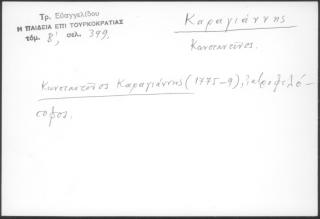 Τρ. Εὐαγγελίδου
Η ΠΑΙΔΕΙΑ ΕΠΙ ΤΟΥΡΚΟΚΡΑΤΙΑΣ
τόμ. Β', σελ. 399.
Καραγιάννης
Κωνσταντῖνος.
Κωνσταντῖνος Καραγιάννης (1775-9), ἰατροφιλό-
σοφος.